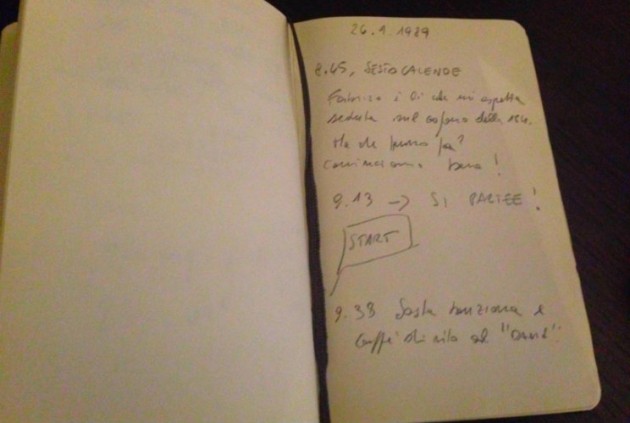 26.1.1989
8.45, SESTO CALENDE
Fabrizio è lì che mi aspetta
seduto sul cofano della 124.
Ma che
Cominciamo bene!
9.13 -> SI PARTEE!
START
9.38 Sosta benzina e
caffè di rito al